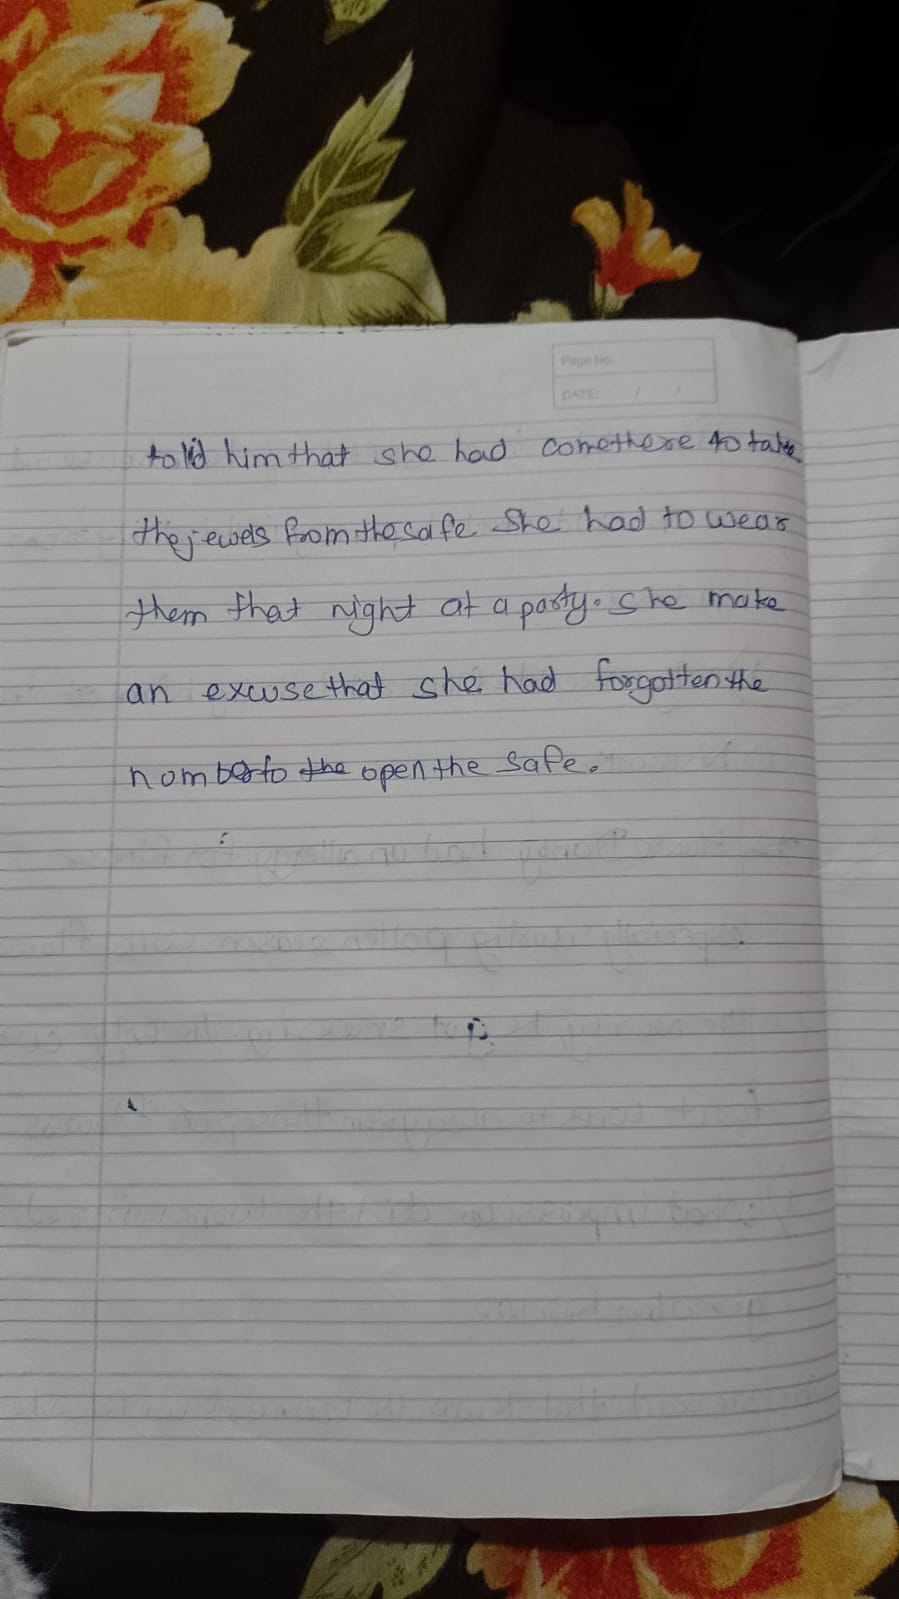 Page No.
DATE: / /
told him that she had come there to take
the jewels from the safe. She had to wear
them that night at a party. She make
an excuse that she had forgotten the
nomber to the open the safe.